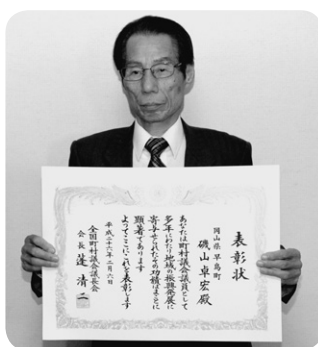 表彰状
岡山県 早島町
磯山卓宏殿
あなたは町村議会議員として
多年にわたり地域の振興発展に
寄与せられたその功績はまことに
顕著であります
よってここにこれを表彰します
平成二十六年二月六日
全国町村議会議長会
会長 蓬 清二